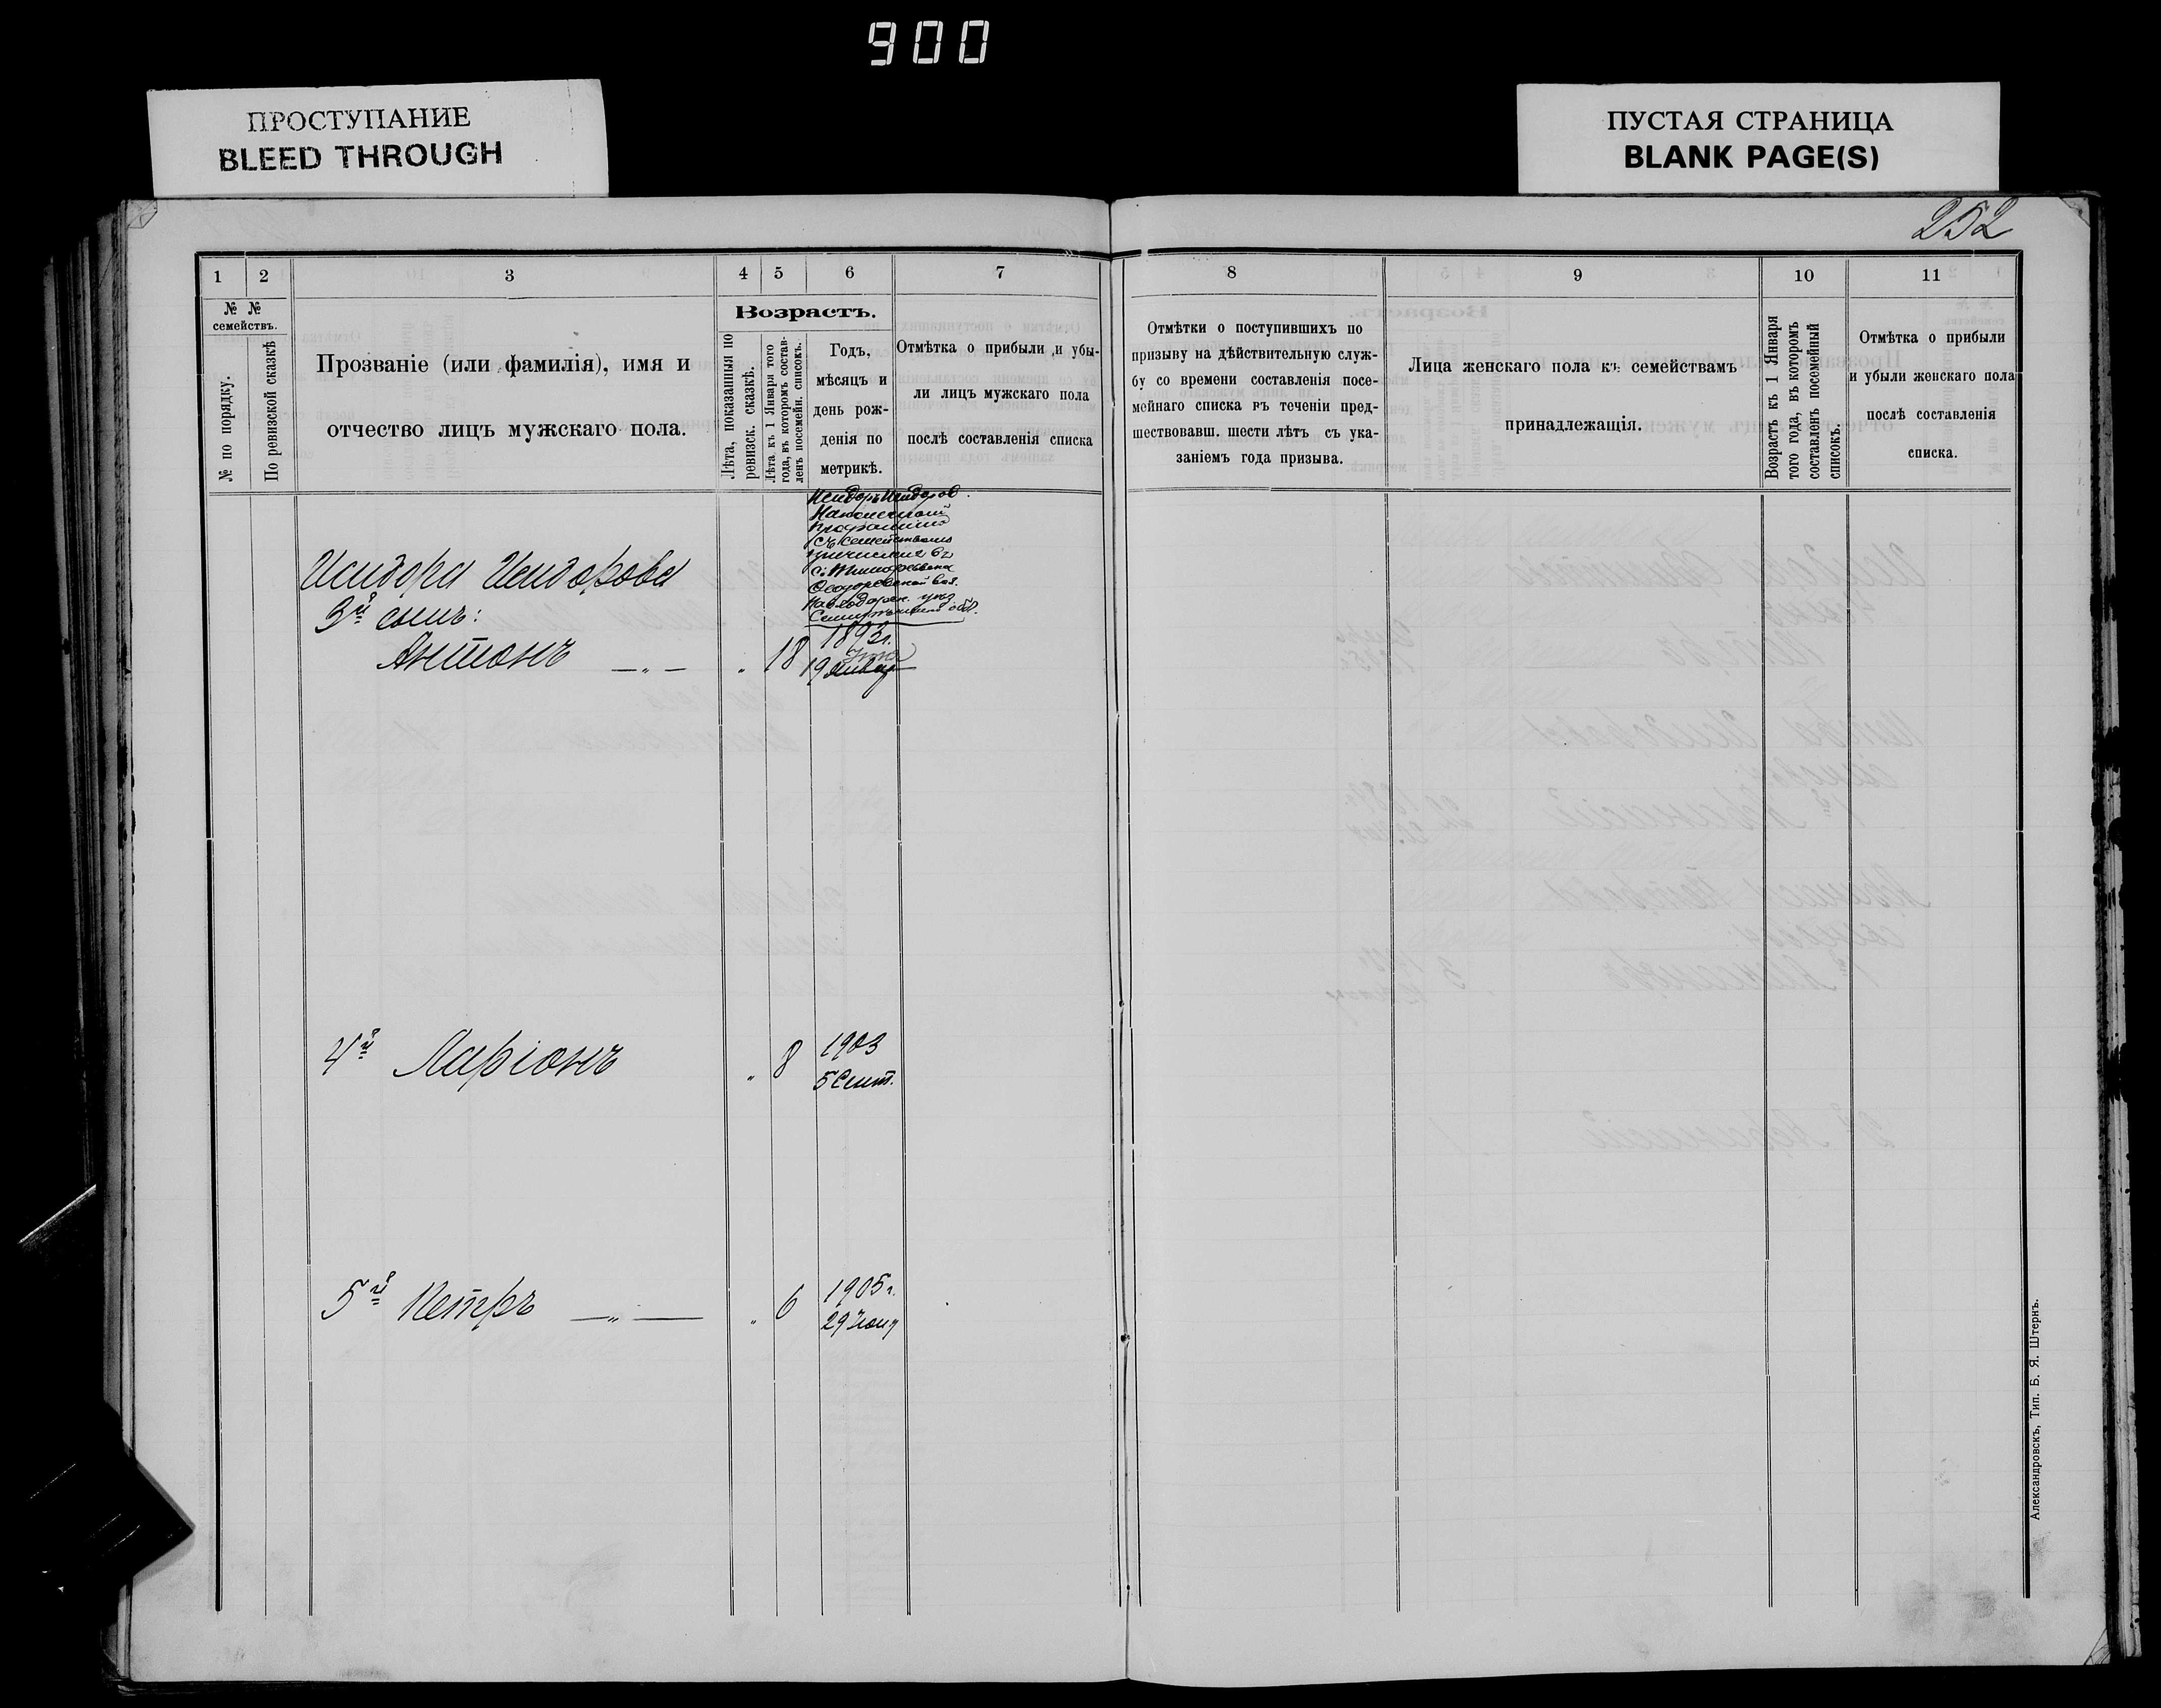 900
ПРОСТУПАНИЕ
BLEED THROUGH
ПУСТАЯ СТРАНИЦА
BLANK PAGE(S)
252
1 2 3 4 5 6 7 8 9 10 11
№ № семействъ.
№ по порядку.
По ревизской сказкѣ
Прозваніе (или фамилія), имя и
отчество лицъ мужскаго пола.
Возрастъ.
Лѣта, показанныя по
ревизск. сказкѣ.
Лѣта къ 1 Января того
года, въ которомъ состав-
ленъ посемейн. списокъ.
Годъ,
мѣсяцъ и
день рож-
денія по
метрикѣ.
Отмѣтка о прибыли и убы-
ли лицъ мужскаго пола
послѣ составленія списка
Отмѣтки о поступившихъ по
призыву на дѣйствительную служ-
бу со времени составленія посе-
мейнаго списка въ теченіи пред-
шествовавш. шести лѣтъ съ ука-
заніемъ года призыва.
Лица женскаго пола къ семействамъ
принадлежащія.
Возрастъ къ 1 Января
того года, въ которомъ
составленъ посемейный
списокъ.
Отмѣтка о прибыли
и убыли женскаго пола
послѣ составленія
списка.
Исидоръ Исидоров
съ семействомъ
Павлодарск. уѣз
Исидора Исидорова
3й сынъ:
Антонъ — „ — „ 18 1893г.
19
4й Ларіонъ „ 8 1903
5 Сент.
5й Петръ — „ — „ 6 1905г.
29 Іюня
Александровскъ, Тип. Б. Я. Штернъ.